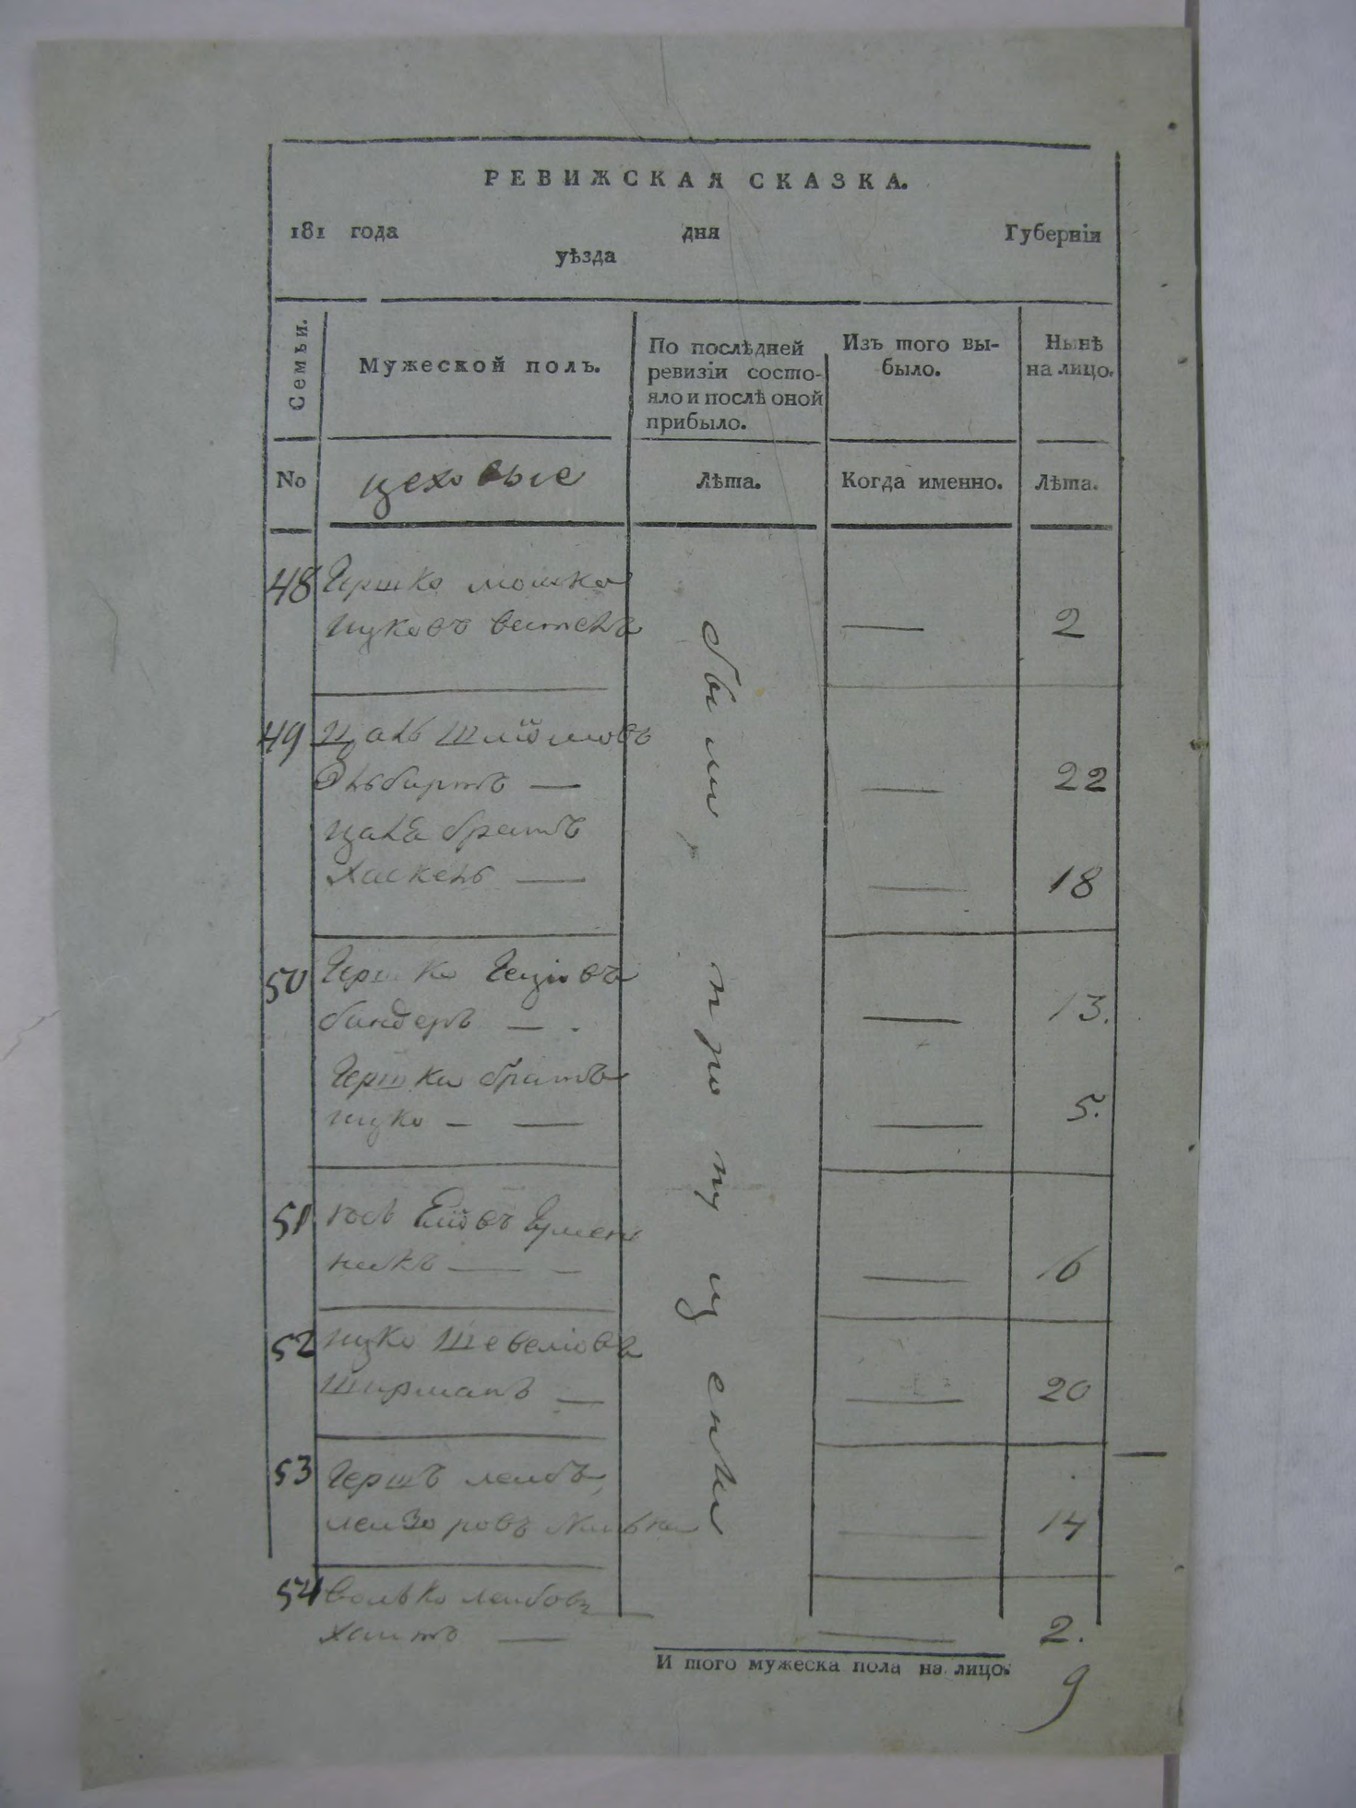 РЕВИЖСКАЯ СКАЗКА.
181 года дня Губерніи
уѣзда
Семьи.
Мужеской полъ.
По послѣдней
ревизіи состо-
яло и послѣ оной
прибыло.
Изъ того вы-
было.
Нынѣ
на лицо.
No
цеховые
Лѣта.
Когда именно.
Лѣта.
были пропущены
48 Гершко мошко
ицковъ — 2
49 Шліомовъ
— — 22
братъ
Хаскель — — 18
50 Гершко
бандеръ — . — 13.
Гершка братъ
ицко — — — 5.
51
— — — 16
52 ицко Шевелiовъ
Ширманъ — — 20
53 Гершъ леибъ
леизоровъ — 14
54 волько леибовъ
— — 2.
И того мужеска пола на лицо. 9